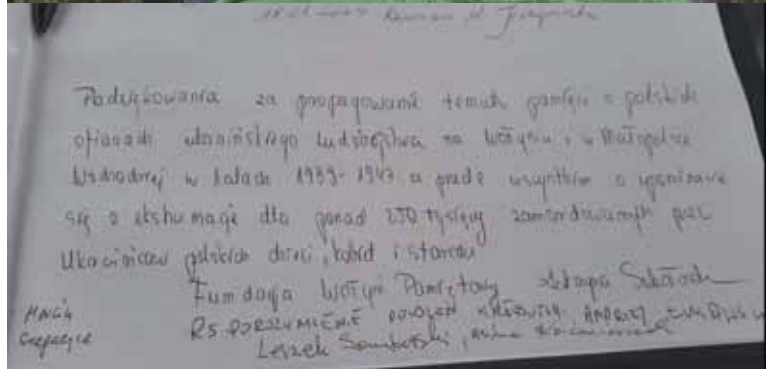 Podziękowania za propagowanie tematu pamięci o polskich
ofiarach ukraińskiego ludobójstwa na Wołyniu i w Małopolsce
Wschodniej w latach 1939-1947 a przede wszystkim o upominanie
się o ekshumacje dla ponad 250 tysięcy zamordowanych przez
Ukraińców polskich dzieci, kobiet i starców
Fundacja Wołyń Pamiętamy
RS POROZUMIENIE POKOLEŃ KRESOWYCH ANDRZEJ
Leszek